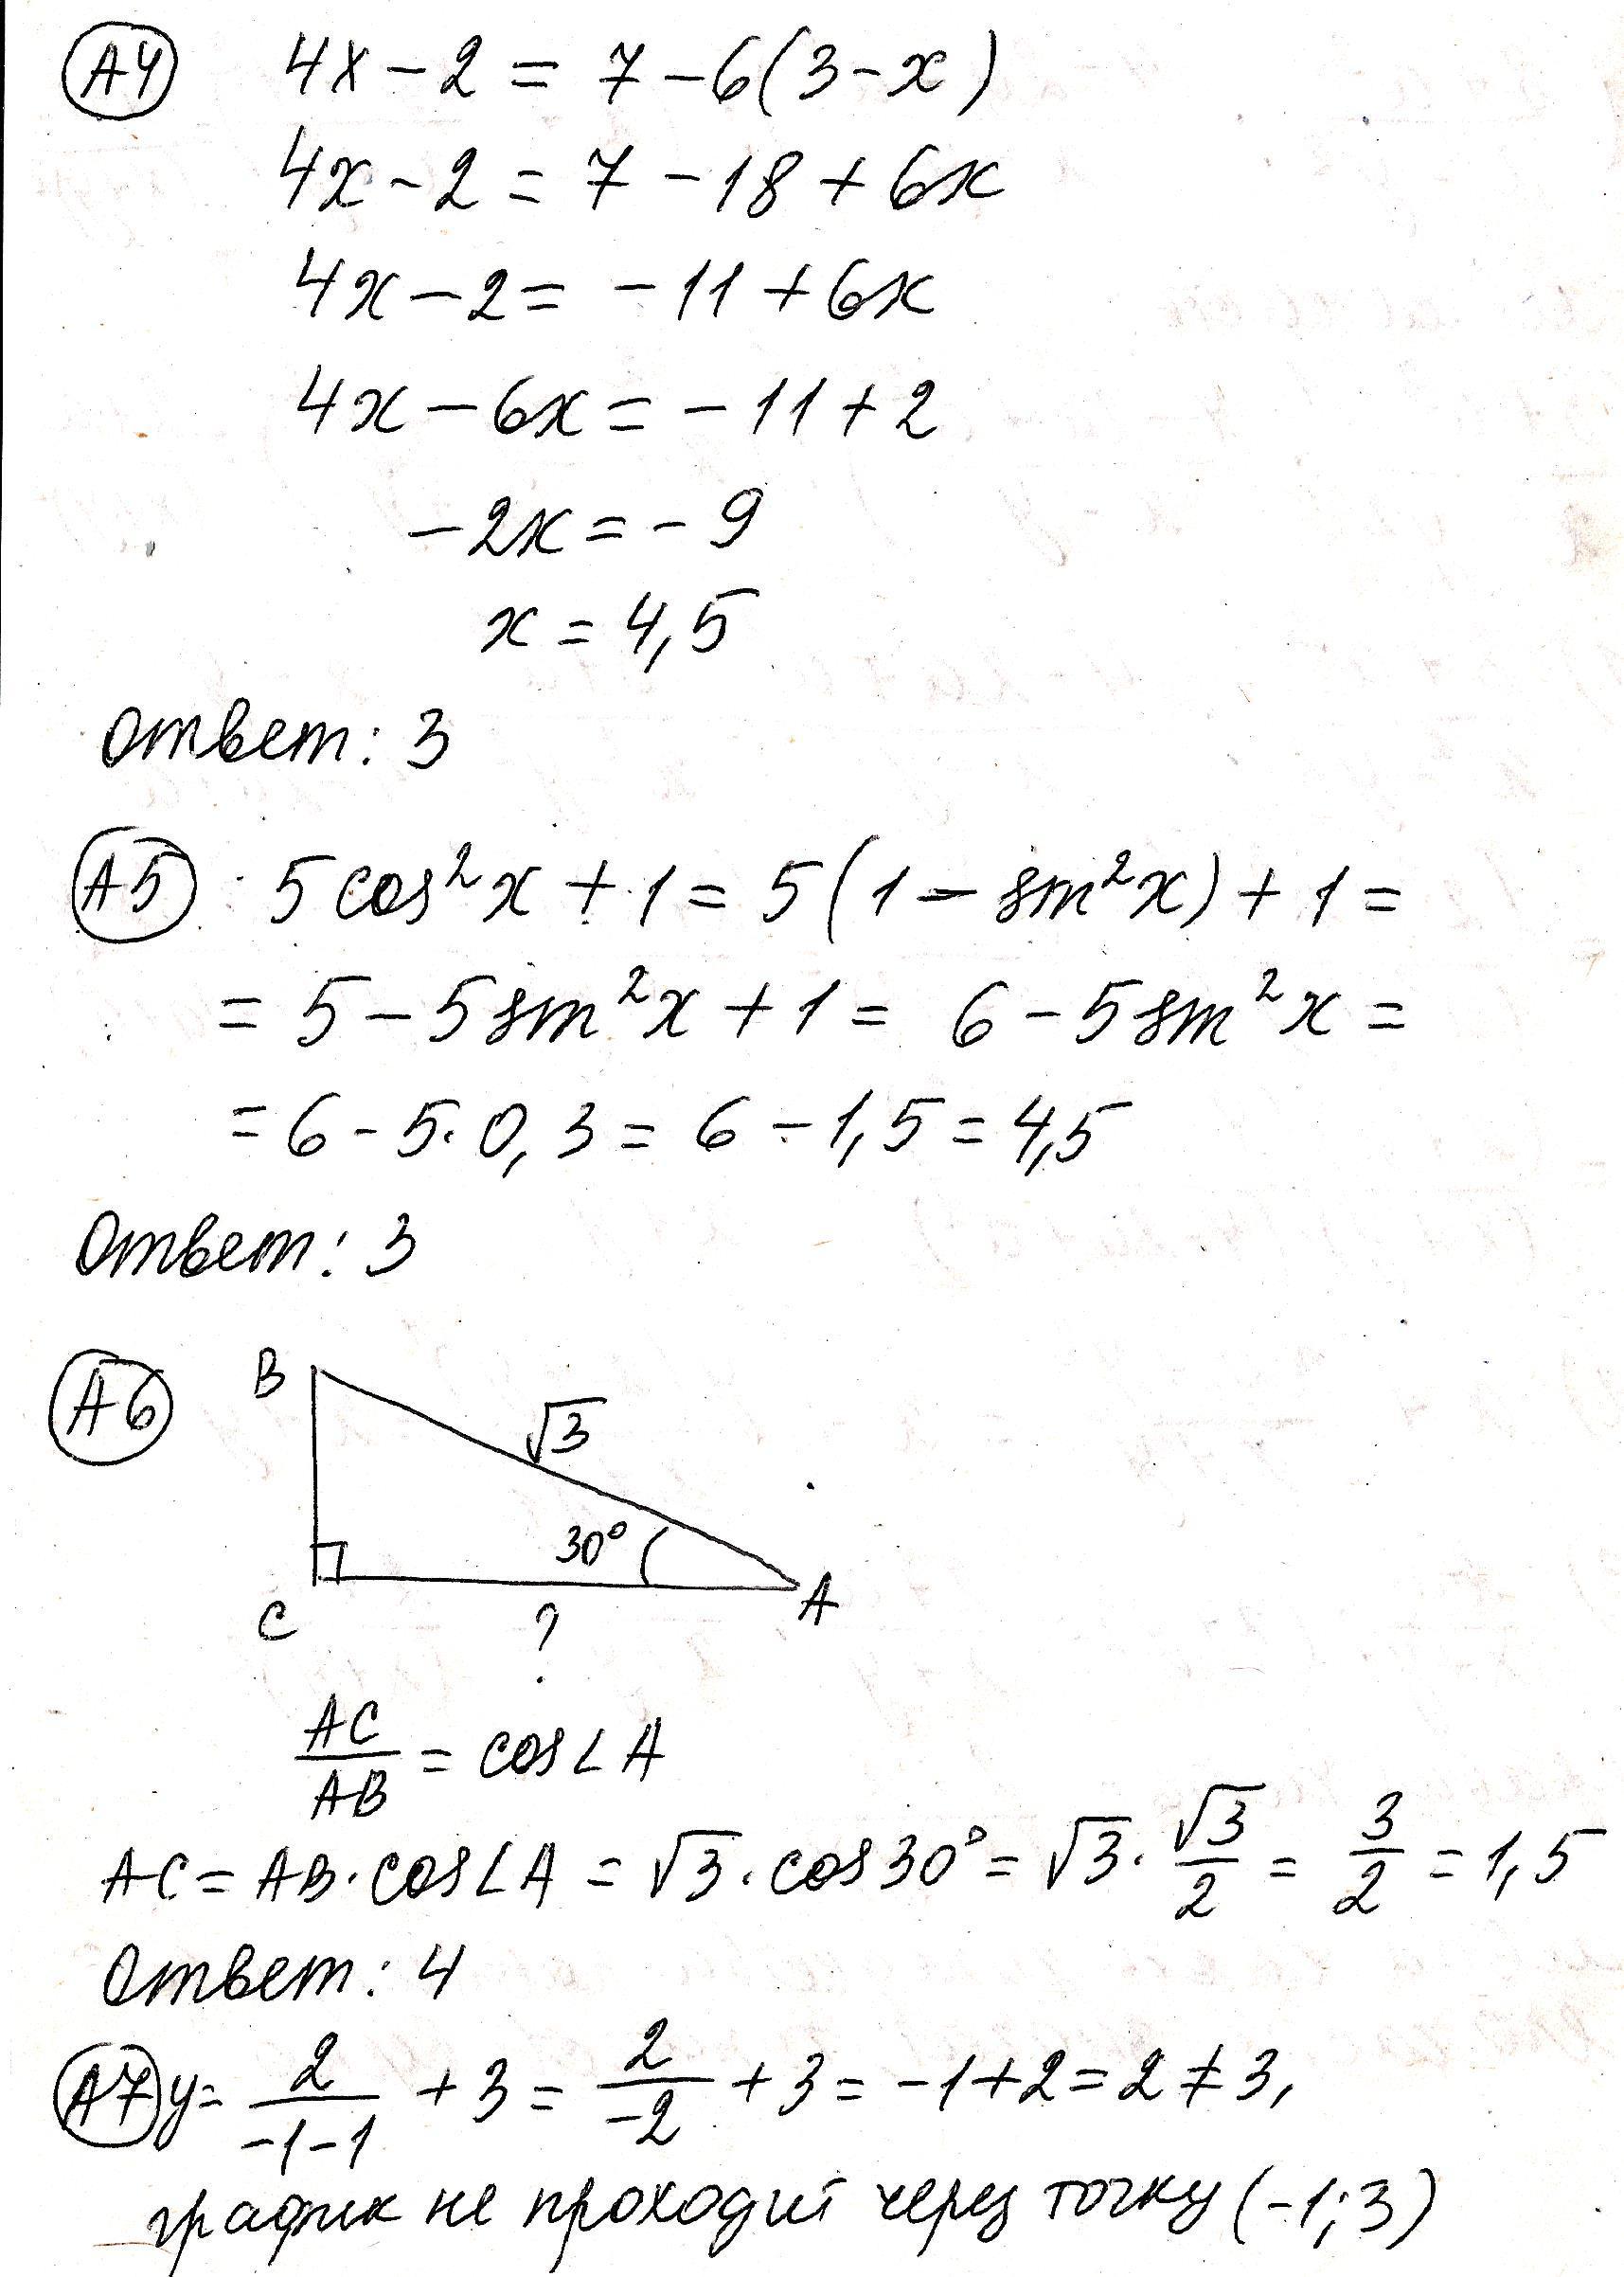 А4 4x - 2 = 7 - 6(3 - x)
4x - 2 = 7 - 18 + 6x
4x - 2 = - 11 + 6x
4x - 6x = - 11 + 2
- 2x = - 9
x = 4,5
Ответ: 3
А5 5 cos²x + 1 = 5(1 - sin²x) + 1 =
= 5 - 5 sin²x + 1 = 6 - 5 sin²x =
= 6 - 5 · 0,3 = 6 - 1,5 = 4,5
Ответ: 3
А6
B
√3
30°
C
A
?
AC/AB = cos∠A
AC = AB · cos∠A = √3 · cos30° = √3 · √3/2 = 3/2 = 1,5
Ответ: 4
А7 y = 2/(-1-1) + 3 = 2/-2 + 3 = -1 + 2 = 2 ≠ 3,
график не проходит через точку (-1; 3)